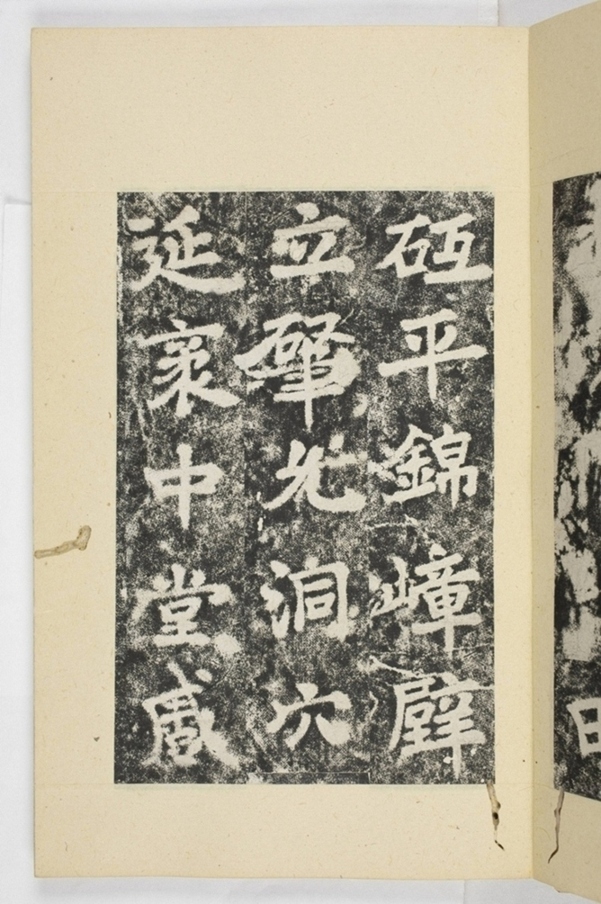 砥平錦嶂壁
立肇允洞穴
延袤中堂